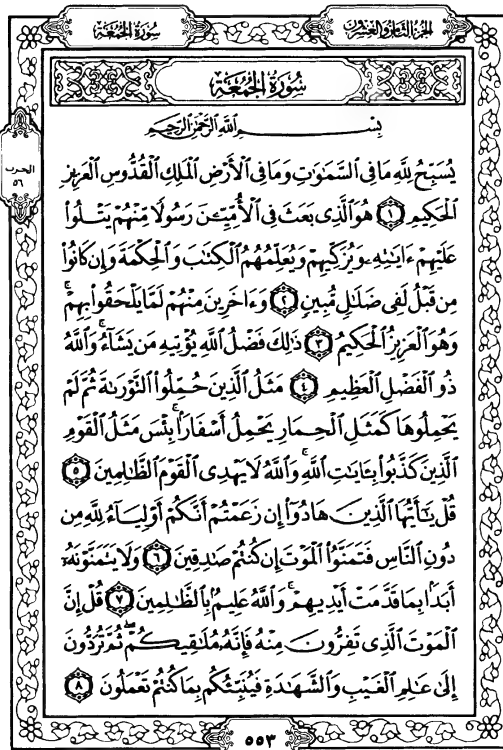 سُورَةُ الجُمُعَةِ
الجزء الثامن والعشرون
سُورَةُ الجُمُعَةِ
بِسْمِ اللَّهِ الرَّحْمَٰنِ الرَّحِيمِ
الحزب
٥٦
يُسَبِّحُ لِلَّهِ مَا فِي السَّمَٰوَٰتِ وَمَا فِي الْأَرْضِ الْمَلِكِ الْقُدُّوسِ الْعَزِيزِ
الْحَكِيمِ ١ هُوَ الَّذِي بَعَثَ فِي الْأُمِّيِّـۧنَ رَسُولًا مِّنْهُمْ يَتْلُوا۟
عَلَيْهِمْ ءَايَٰتِهِۦ وَيُزَكِّيهِمْ وَيُعَلِّمُهُمُ الْكِتَٰبَ وَالْحِكْمَةَ وَإِن كَانُوا۟
مِن قَبْلُ لَفِي ضَلَٰلٍ مُّبِينٍ ٢ وَءَاخَرِينَ مِنْهُمْ لَمَّا يَلْحَقُوا۟ بِهِمْ ۚ
وَهُوَ الْعَزِيزُ الْحَكِيمُ ٣ ذَٰلِكَ فَضْلُ اللَّهِ يُؤْتِيهِ مَن يَشَآءُ ۚ وَاللَّهُ
ذُو الْفَضْلِ الْعَظِيمِ ٤ مَثَلُ الَّذِينَ حُمِّلُوا۟ التَّوْرَىٰةَ ثُمَّ لَمْ
يَحْمِلُوهَا كَمَثَلِ الْحِمَارِ يَحْمِلُ أَسْفَارًۢا ۚ بِئْسَ مَثَلُ الْقَوْمِ
الَّذِينَ كَذَّبُوا۟ بِـَٔايَٰتِ اللَّهِ ۚ وَاللَّهُ لَا يَهْدِي الْقَوْمَ الظَّٰلِمِينَ ٥
قُلْ يَٰٓأَيُّهَا الَّذِينَ هَادُوٓا۟ إِن زَعَمْتُمْ أَنَّكُمْ أَوْلِيَآءُ لِلَّهِ مِن
دُونِ النَّاسِ فَتَمَنَّوُا۟ الْمَوْتَ إِن كُنتُمْ صَٰدِقِينَ ٦ وَلَا يَتَمَنَّوْنَهُۥٓ
أَبَدًۢا بِمَا قَدَّمَتْ أَيْدِيهِمْ ۚ وَاللَّهُ عَلِيمٌۢ بِالظَّٰلِمِينَ ٧ قُلْ إِنَّ
الْمَوْتَ الَّذِي تَفِرُّونَ مِنْهُ فَإِنَّهُۥ مُلَٰقِيكُمْ ۖ ثُمَّ تُرَدُّونَ
إِلَىٰ عَٰلِمِ الْغَيْبِ وَالشَّهَٰدَةِ فَيُنَبِّئُكُم بِمَا كُنتُمْ تَعْمَلُونَ ٨
٥٥٣